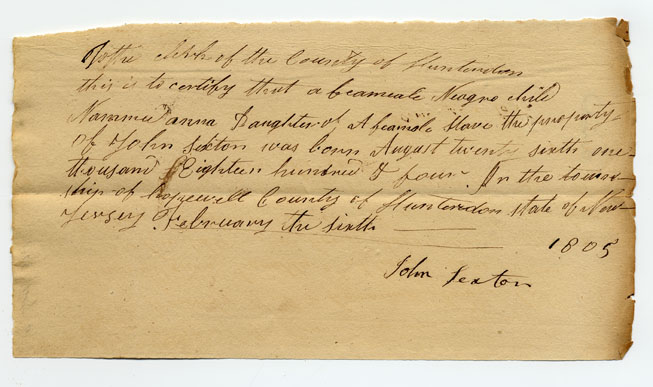 To the Clerk of the County of Hunterdon
this is to certify that a feameale Neagro child
Nammed anna Daughter of A feamale slave the property
of John Sexton was born August twenty sixth one
thousand Eighteen hundred & four In the town-
ship of hopewell County of Hunterdon state of New-
Jersey February the sixth
1805
John Sexton